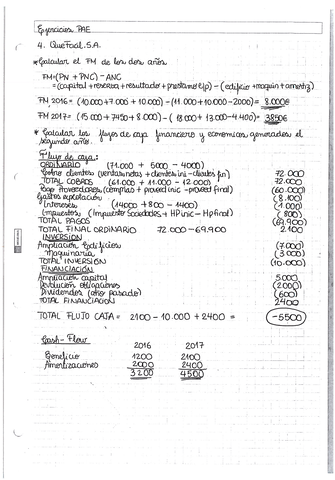 Ejercicios PAE
4. QueFácil, S.A.
* Calcular el FM de los dos años
FM = (PN + PNC) - ANC
= (capital + reserva + resultado + prestamo e/p) - (edificio + maquin + amort)
FM 2016 = (10.000 + 7.000 + 10.000) - (11.000 + 10.000 - 2000) = 8.000€
FM 2017 = (15.000 + 7450 + 8.000) - (13.000 - 4.400) = 3850€
* Calcular los flujos de caja financiero y economicos generados el
segundo año.
Flujo de caja:
ORDINARIO (71.000 + 5000 - 4000)
Cobro clientes (ventas netas + clientes ini - clientes fin) 72.000
TOTAL COBROS (61.000 + 11.000 - 12.000) 72.000
Pago Proveedores (compras + proveed inic - proveed final) (60.000)
Gastos explotación (8.100)
Intereses (14000 + 800 - 1400) (1.000)
Impuestos (Impuesto Sociedades + HP inic - HP final) (800)
TOTAL PAGOS (69.900)
TOTAL FINAL ORDINARIO 72.000 - 69.900 2.100
INVERSION
Ampliación Edificios (7.000)
Maquinaria (3.000)
TOTAL INVERSION (10.000)
FINANCIACIÓN
Ampliación capital 5.000
Devolución obligaciones (2.000)
Dividendos (año pasado) (600)
TOTAL FINANCIACION 2400
TOTAL FLUJO CAJA = 2100 - 10.000 + 2400 = -5500
Cash-Flow
2016 2017
Beneficio 1200 2100
Amortizaciones 2000 2400
3200 4500